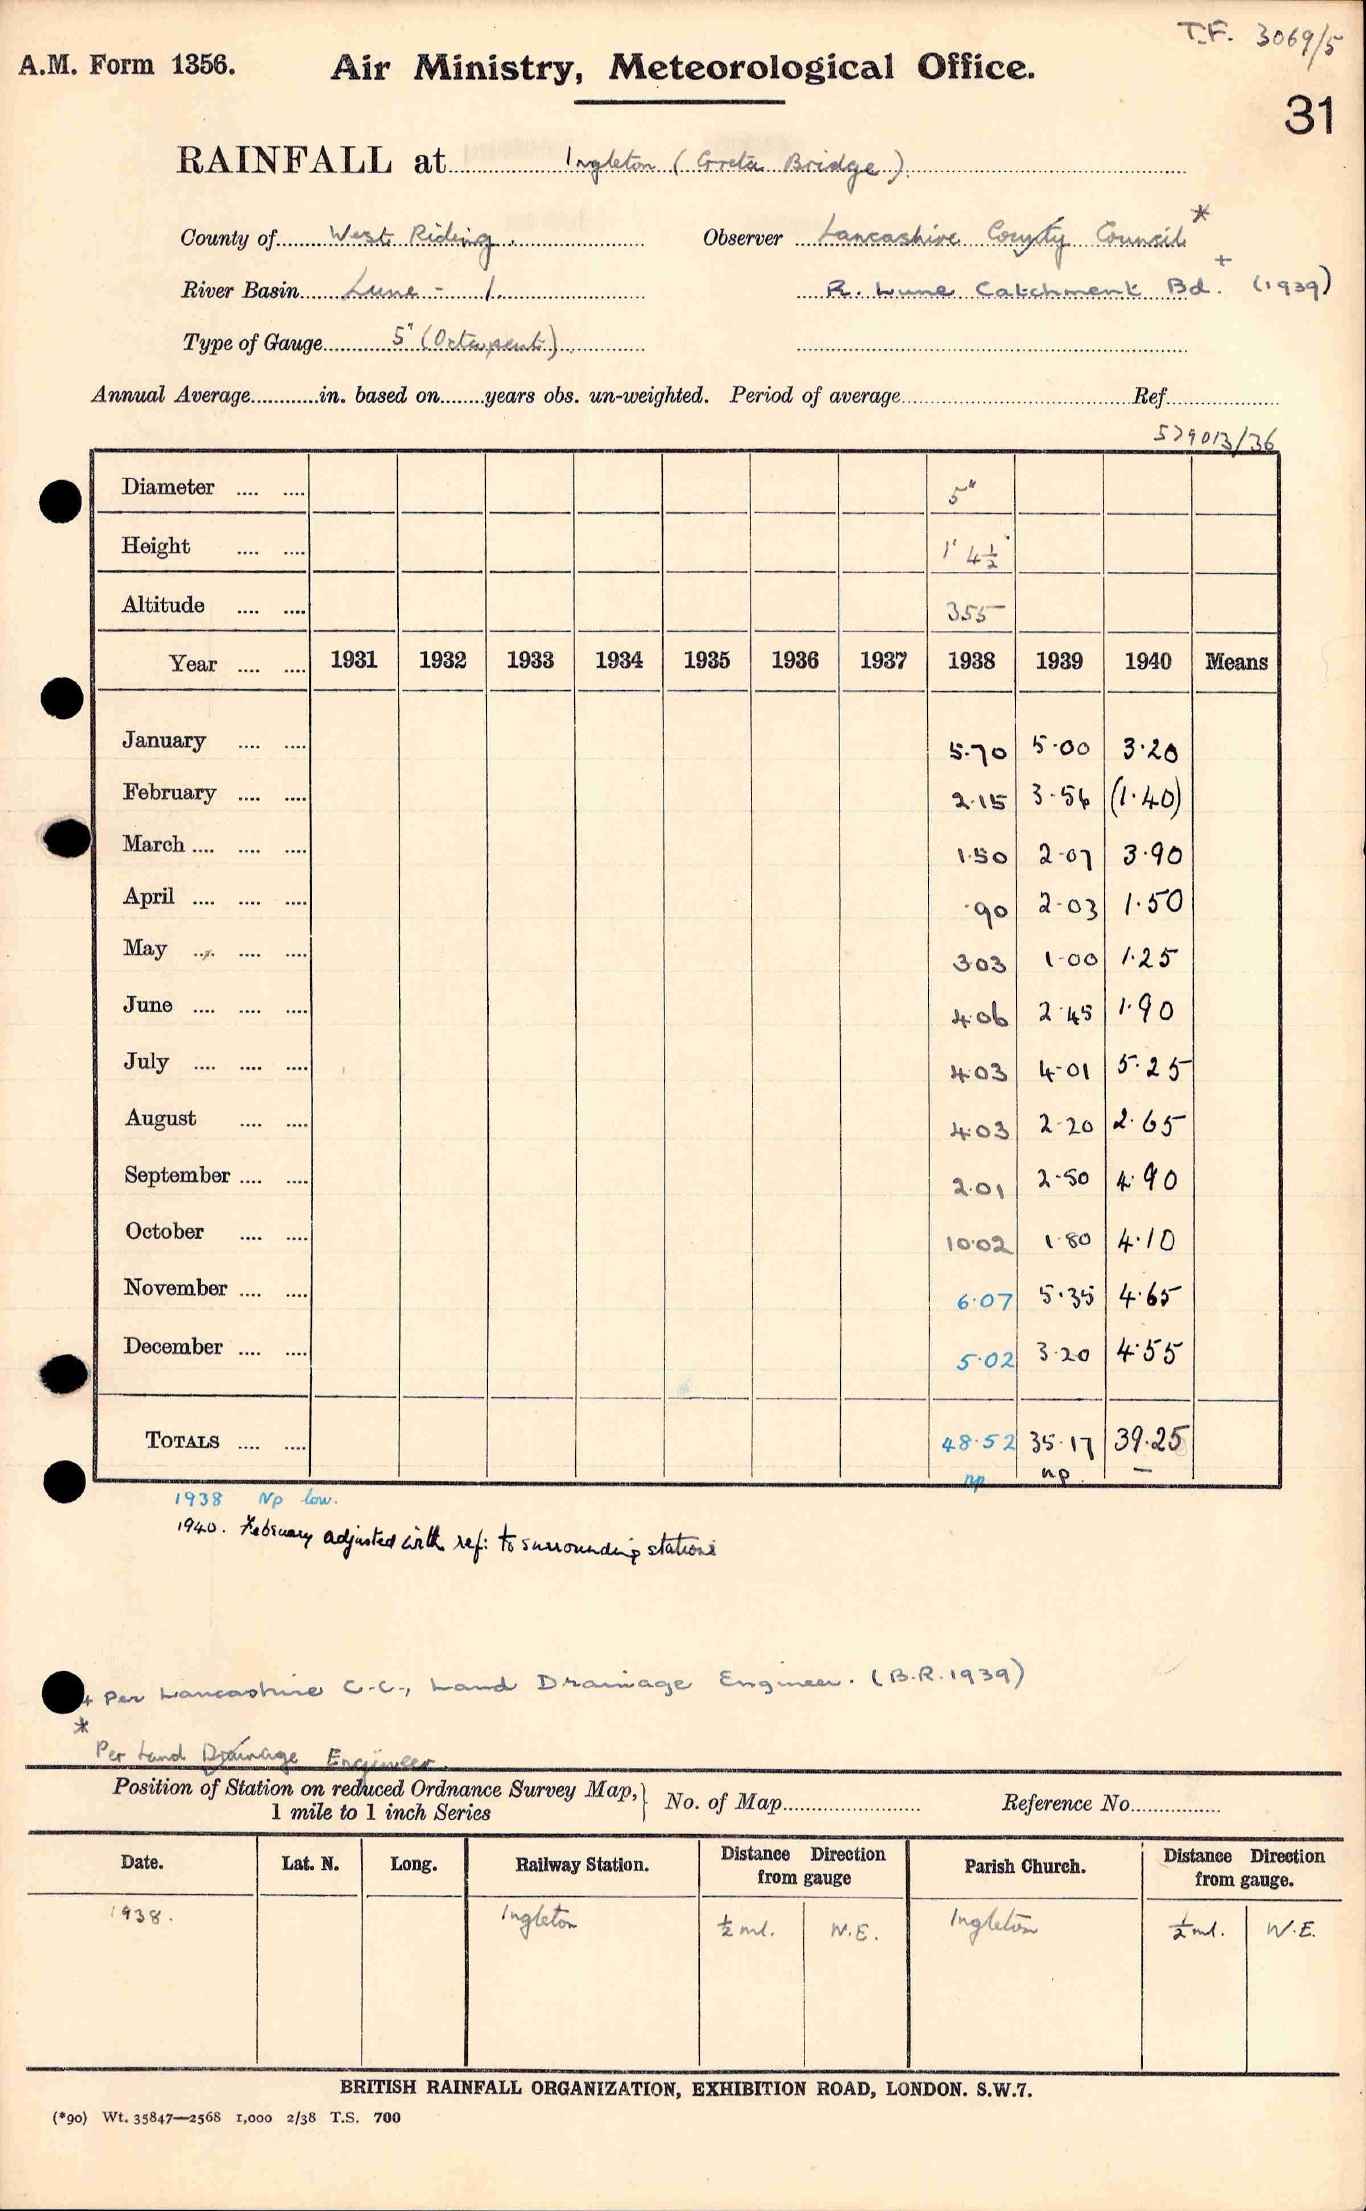 T.F. 3069/5
A.M. Form 1356. Air Ministry, Meteorological Office.
31
RAINFALL at Ingleton (Greta Bridge)
County of West Riding. Observer Lancashire County Council *
River Basin Lune - 1. R. Lune Catchment Bd. + (1939)
Type of Gauge 5" (Octapent)
Annual Average in. based on years obs. un-weighted. Period of average Ref
579013/36
Diameter .... .... 5"
Height .... .... 1' 4½"
Altitude .... .... 355
Year .... .... 1931 1932 1933 1934 1935 1936 1937 1938 1939 1940 Means
January .... .... 5.70 5.00 3.20
February .... .... 2.15 3.56 (1.40)
March .... .... .... 1.50 2.07 3.90
April .... .... .... .90 2.03 1.50
May .... .... .... 3.03 1.00 1.25
June .... .... .... 4.06 2.45 1.90
July .... .... .... 4.03 4.01 5.25
August .... .... 4.03 2.20 2.65
September .... .... 2.01 2.50 4.90
October .... .... 10.02 1.80 4.10
November .... .... 6.07 5.35 4.65
December .... .... 5.02 3.20 4.55
TOTALS .... .... 48.52 35.17 39.25
np np —
1938 Np low.
1940. February adjusted with ref: to surrounding stations
+ Per Lancashire C.C., Land Drainage Engineer. (B.R. 1939)
*
Per Land Drainage Engineer.
Position of Station on reduced Ordnance Survey Map, 1 mile to 1 inch Series } No. of Map Reference No.
Date. Lat. N. Long. Railway Station. Distance Direction from gauge Parish Church. Distance Direction from gauge.
1938. Ingleton ½ ml. N.E. Ingleton ½ ml. N.E.
BRITISH RAINFALL ORGANIZATION, EXHIBITION ROAD, LONDON. S.W.7.
(*90) Wt. 35847—2568 1,000 2/38 T.S. 700